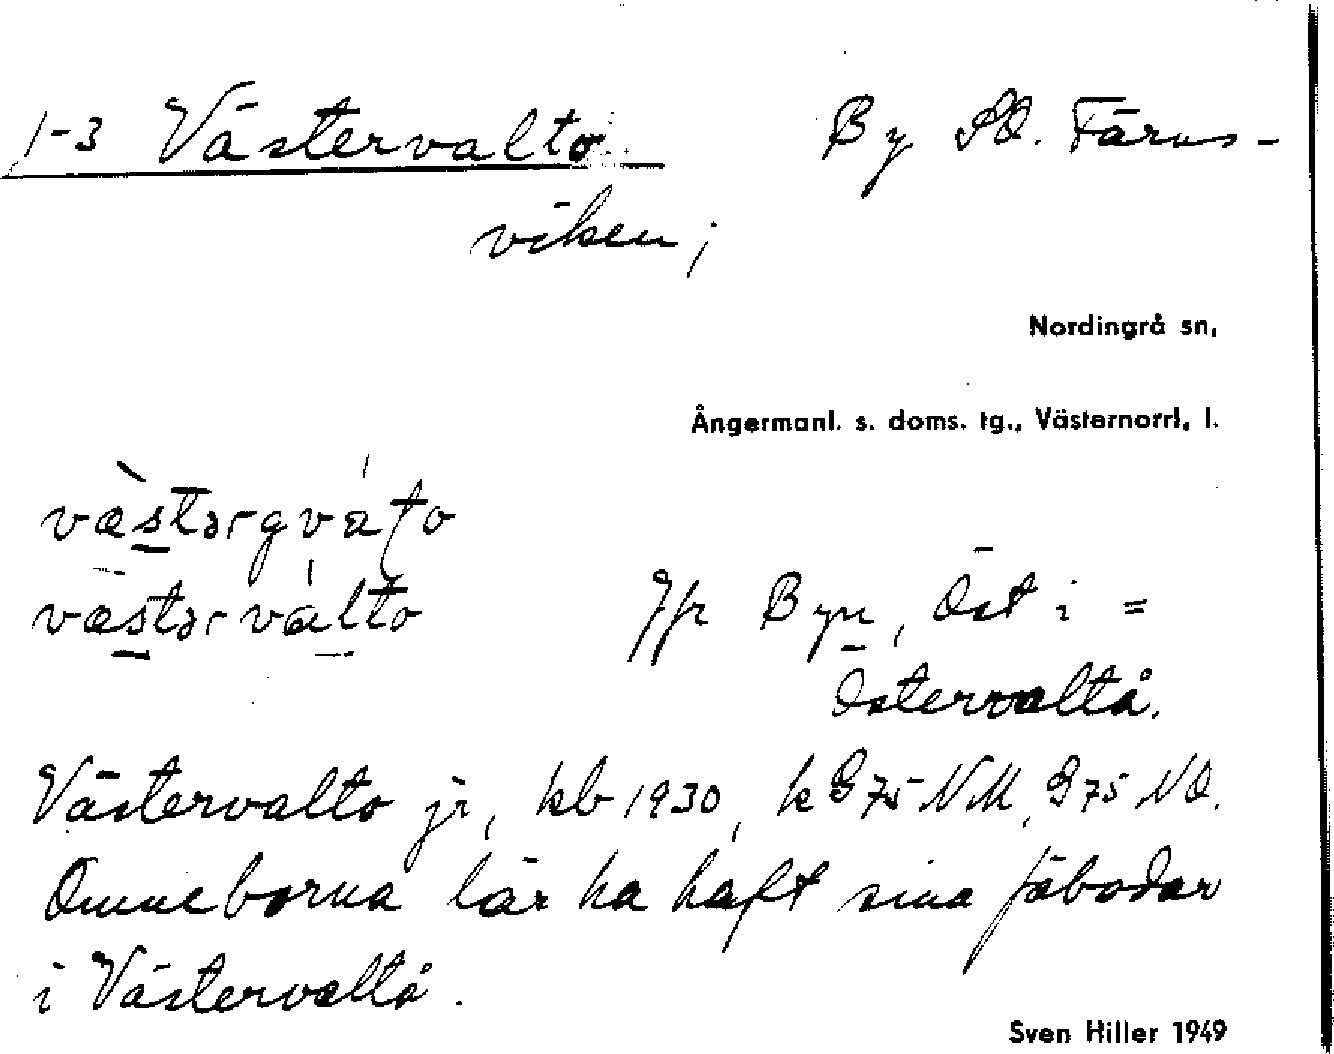 1-3 Västervalto By SO. Färus-
viken;
Nordingrå sn,
Ångermanl. s. doms. tg., Västernorrl. l.
västərgvato
västərvalto Jfr Byn, Öst i =
Östervaltå.
Västervalto jr, kb 1930, k G 75 NM, G 75 NO.
Omneborna lär ha haft sina fäbodar
i Västervaltå.
Sven Hiller 1949